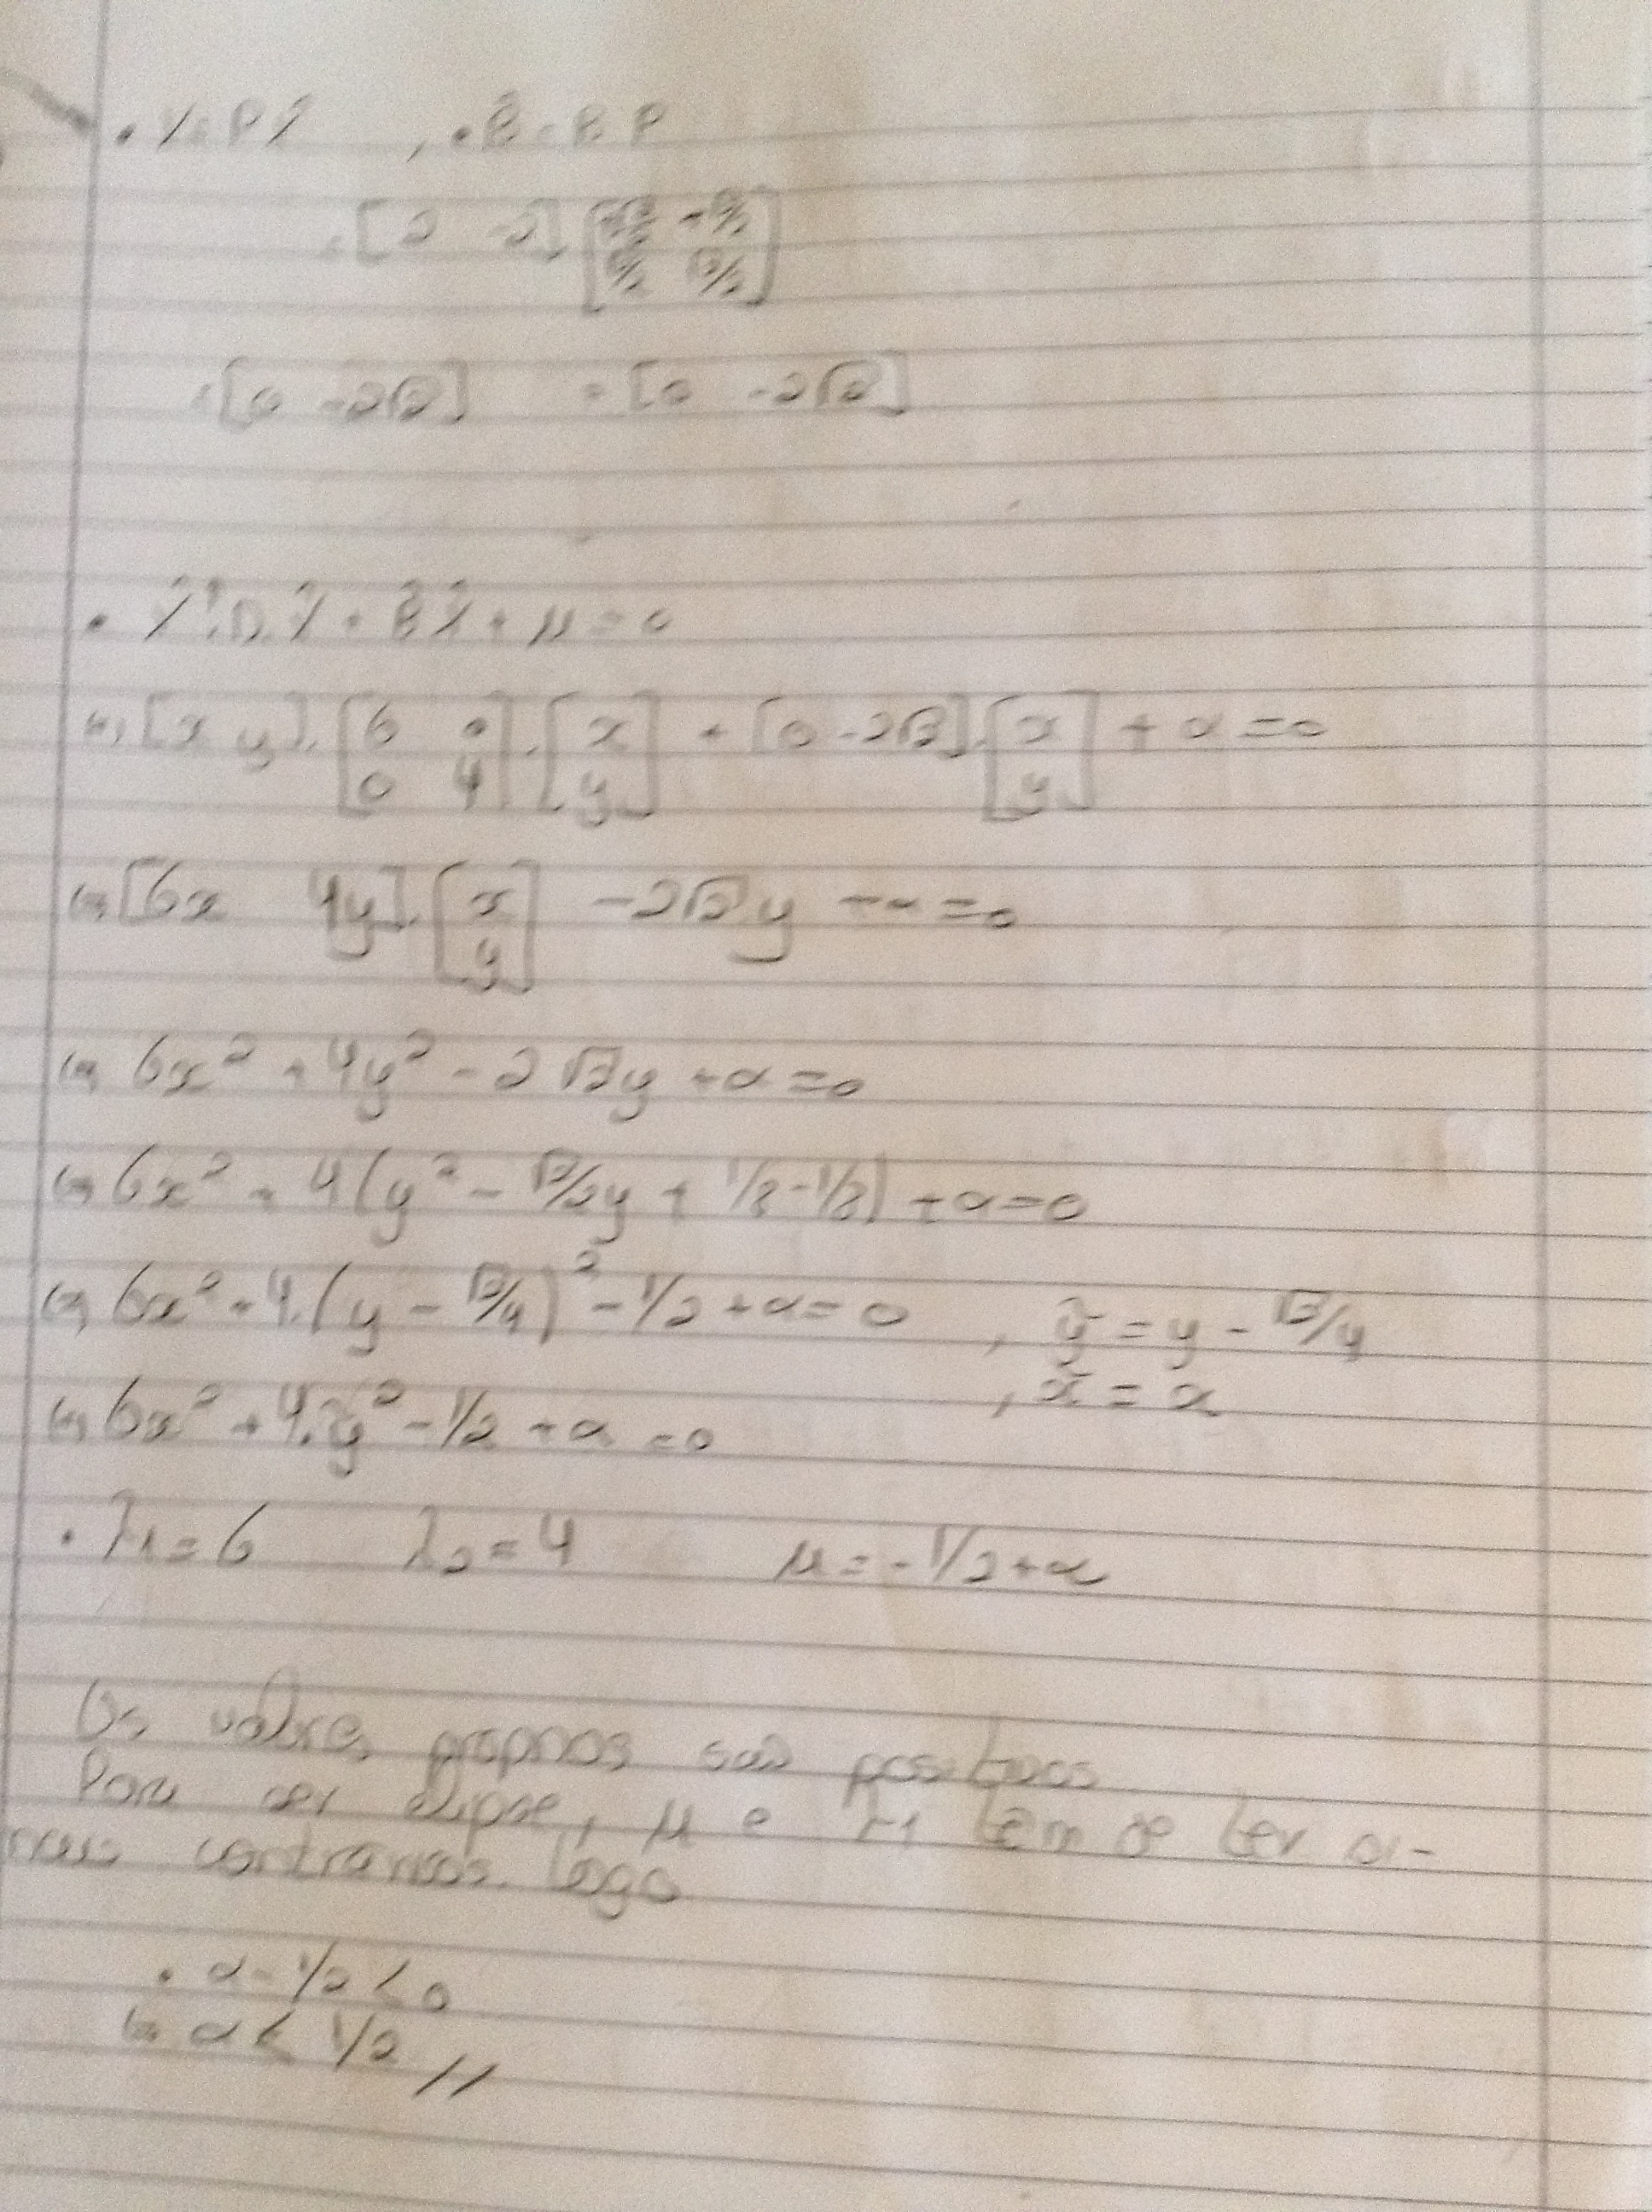 • X = PX̂ , • B̂ = B P
= [2 -2] [√2/2 -√2/2
√2/2 √2/2]
= [0 -2√2] = [0 -2√2]
• X̂ᵀ.D.X̂ + B̂X̂ + μ = 0
(=) [x y]. [6 0
0 4] . [x
y] + [0 -2√2]. [x
y] + α = 0
(=) [6x 4y]. [x
y] - 2√2 y + α = 0
(=) 6x² + 4y² - 2√2y + α = 0
(=) 6x² + 4(y² - √2/2y + 1/8 - 1/8) + α = 0
(=) 6x² + 4.(y - √2/4)² - 1/2 + α = 0 , ỹ = y - √2/4
, x̃ = x
(=) 6x² + 4.ỹ² - 1/2 + α = 0
• λ1 = 6 λ2 = 4 μ = -1/2 + α
Os valores proprios são positivos
Para ser elipse, μ e λ1 têm de ter si-
nais contrarios. Logo
• α - 1/2 < 0
(=) α < 1/2 //